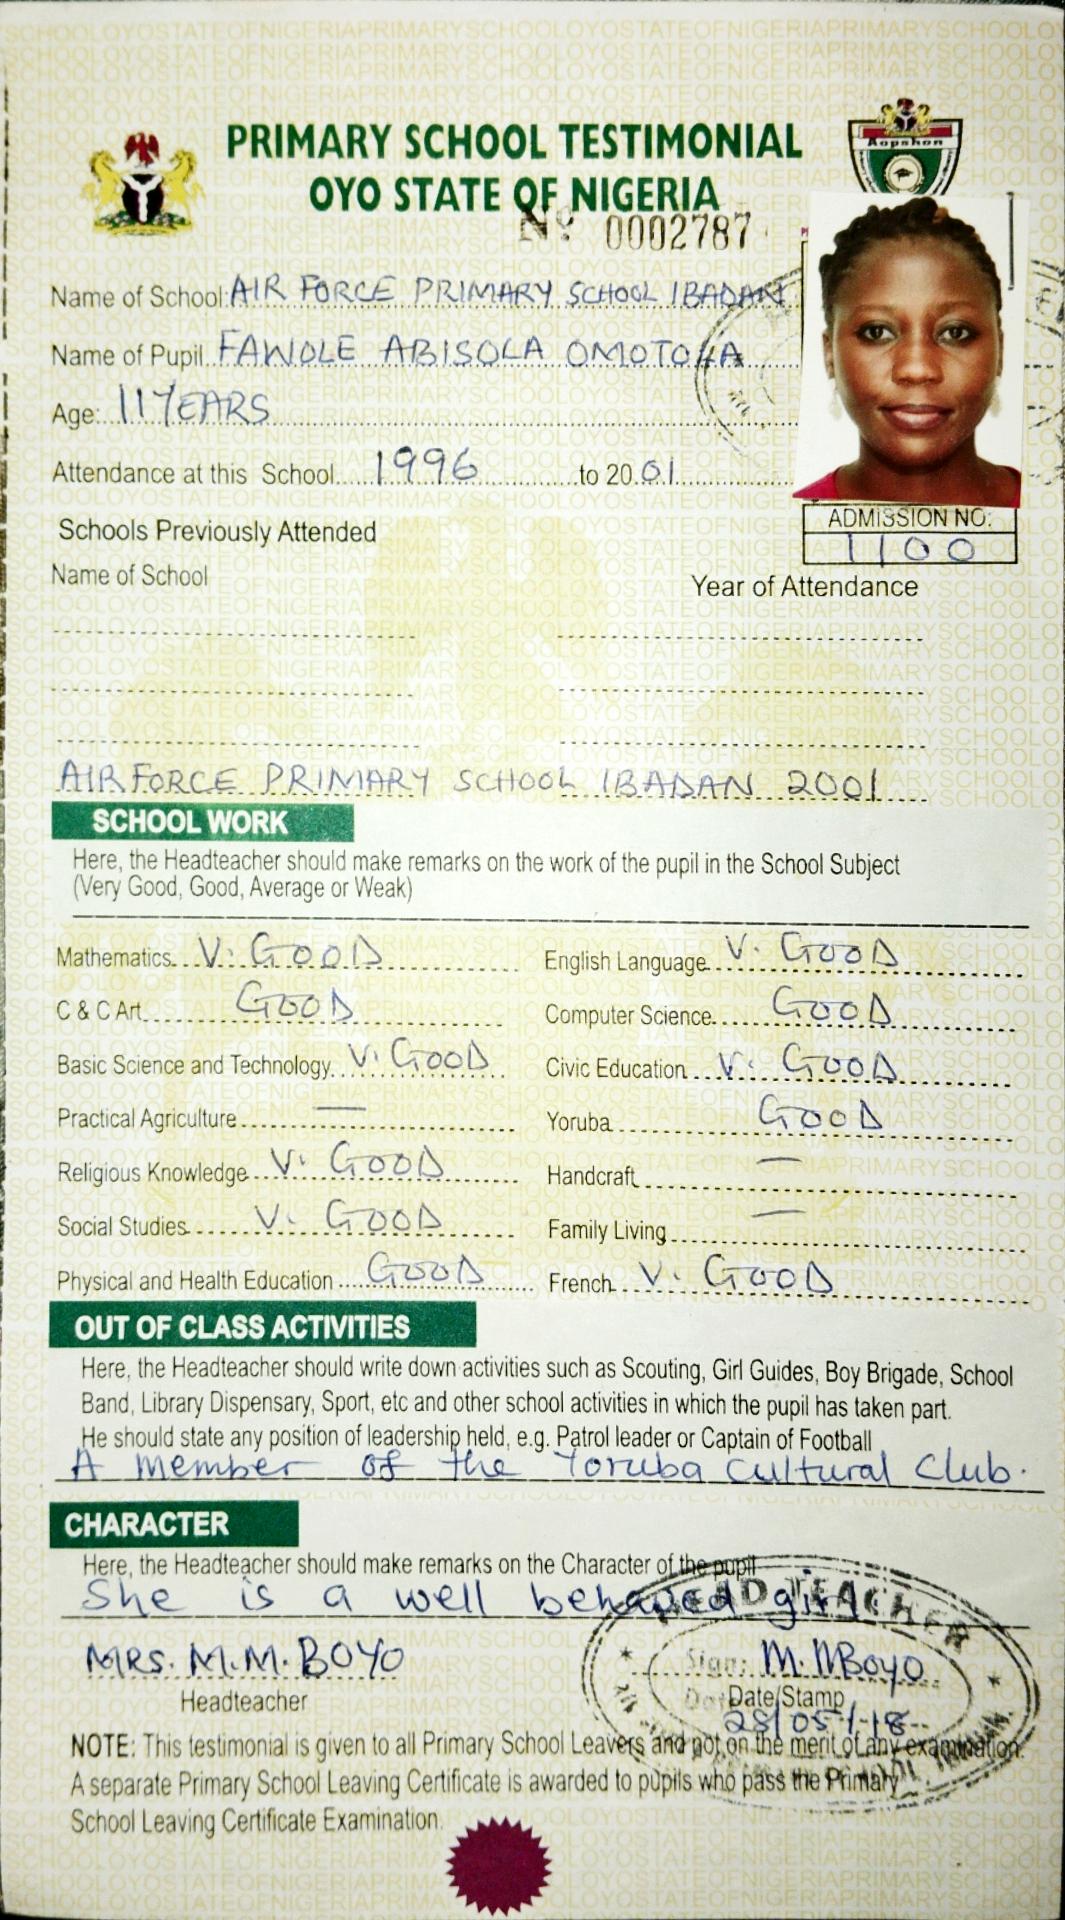 PRIMARY SCHOOL TESTIMONIAL
OYO STATE OF NIGERIA
Aopshon
Nº 0002787
Name of School: AIR FORCE PRIMARY SCHOOL IBADAN
Name of Pupil FAWOLE ABISOLA
Age: 11 YEARS
Attendance at this School 1996 to 2001
ADMISSION NO:
1100
Schools Previously Attended
Name of School Year of Attendance
AIR FORCE PRIMARY SCHOOL IBADAN 2001
SCHOOL WORK
Here, the Headteacher should make remarks on the work of the pupil in the School Subject
(Very Good, Good, Average or Weak)
Mathematics V. GOOD English Language V. GOOD
C & C Art GOOD Computer Science GOOD
Basic Science and Technology V. GOOD Civic Education V. GOOD
Practical Agriculture — Yoruba GOOD
Religious Knowledge V. GOOD Handcraft —
Social Studies V. GOOD Family Living —
Physical and Health Education GOOD French V. GOOD
OUT OF CLASS ACTIVITIES
Here, the Headteacher should write down activities such as Scouting, Girl Guides, Boy Brigade, School
Band, Library Dispensary, Sport, etc and other school activities in which the pupil has taken part.
He should state any position of leadership held, e.g. Patrol leader or Captain of Football
A member of the Yoruba Cultural Club.
CHARACTER
Here, the Headteacher should make remarks on the Character of the pupil
She is a well behaved girl
HEAD TEACHER
MRS. M.M. BOYO Sign: M. MBoyo
Headteacher Date/Stamp
28/05/18
NOTE: This testimonial is given to all Primary School Leavers and not on the merit of any examination.
A separate Primary School Leaving Certificate is awarded to pupils who pass the Primary
School Leaving Certificate Examination.